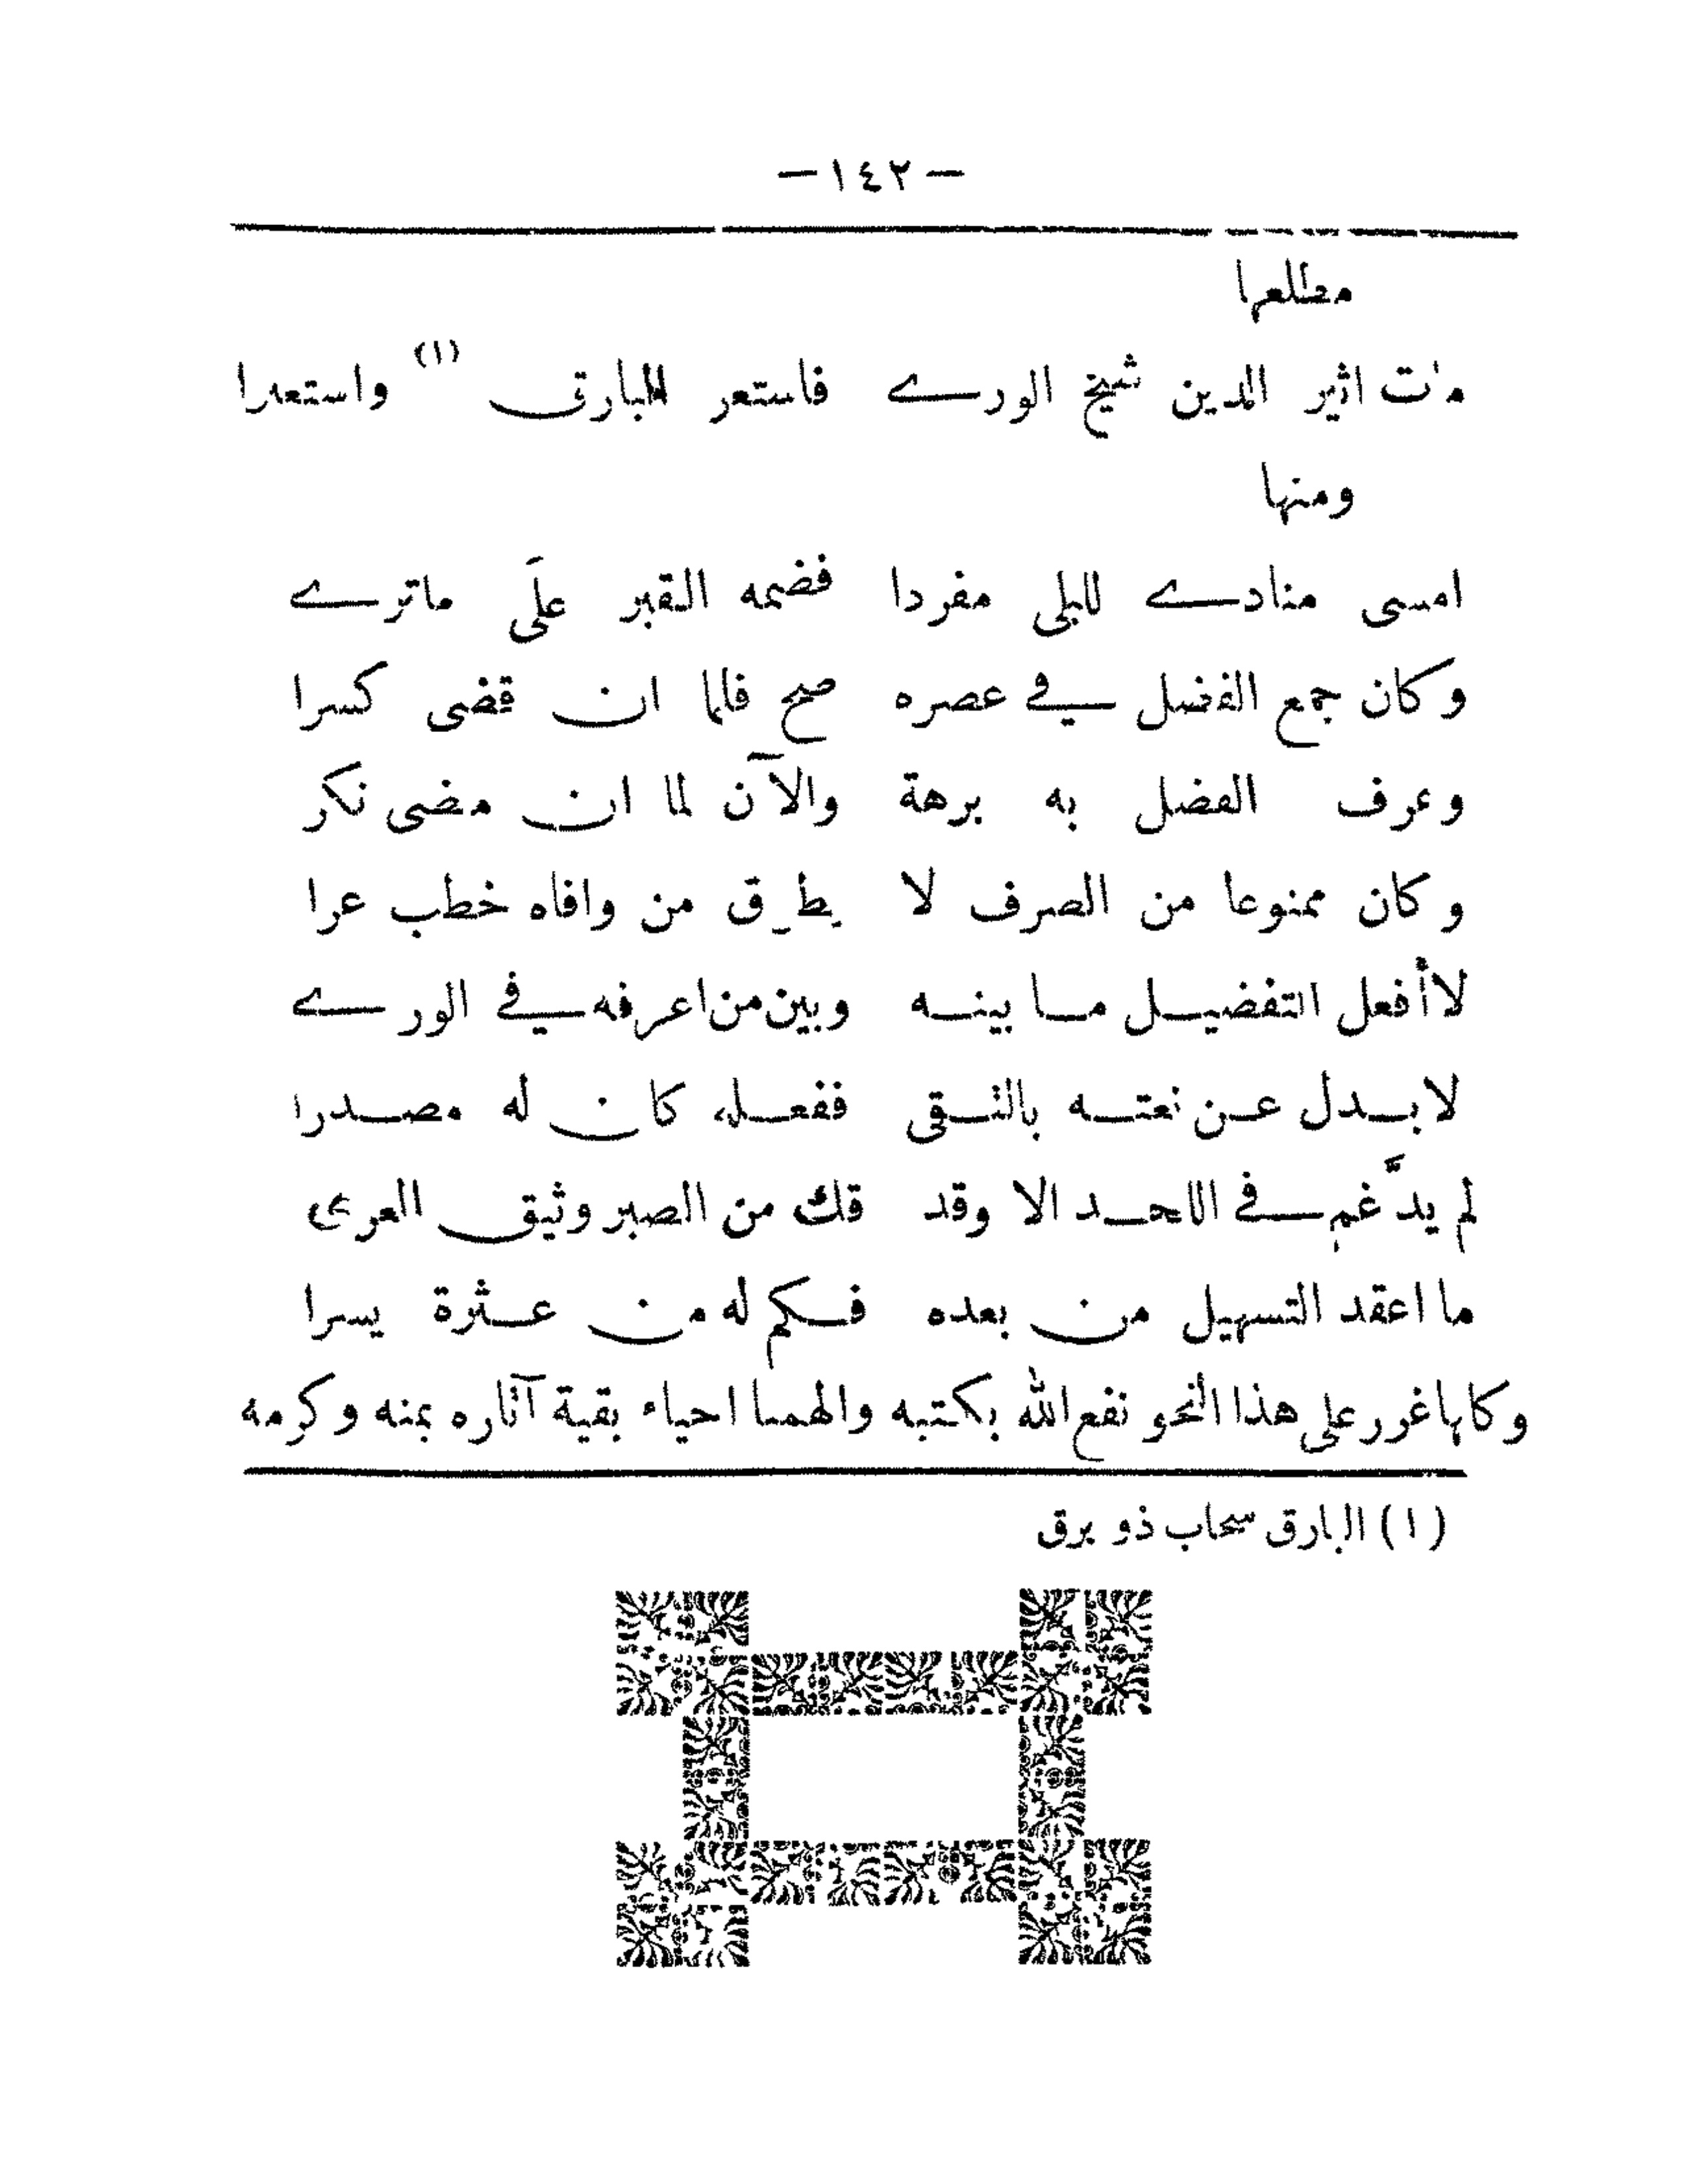 — ١٤٢ —
مطلعها
مات اثير الدين شيخ الورے فاستعر البارق (١) واستعبرا
ومنها
امسى منادے للبلى مفردا فضمه القبر علَى ماترے
وكان جمع الفضل في عصره صح فلما ان قضى كسرا
وعرف الفضل به برهة والآن لما ان مضى نكر
وكان ممنوعا من الصرف لا يطرق من وافاه خطب عرا
لاأفعل التفضيل ما بينه وبين من اعرفه في الورے
لابدل عن نعته بالتقى ففعله كان له مصدرا
لم يدَّغم في اللحد الا وقد فك من الصبر وثيق العرى
ما اعقد التسهيل من بعده فكم له من عثرة يسرا
وكلها غرر على هذا النحو نفع الله بكتبه والهمنا احياء بقية آثاره بمنه وكرمه
(١) البارق سحاب ذو برق